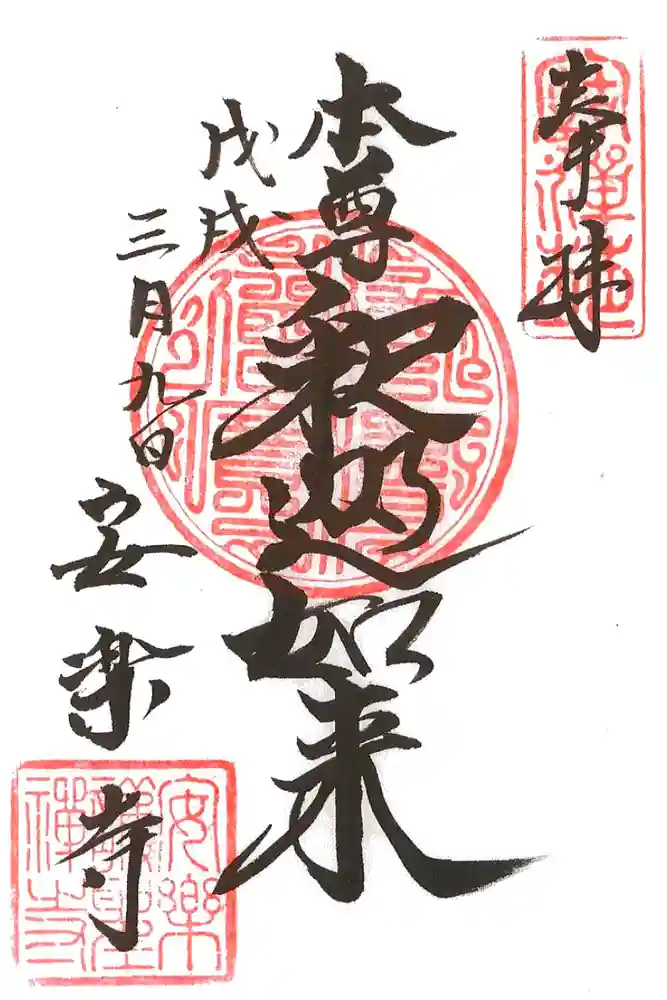 奉拝
本尊
釈迦如来
戊戌
三月九日
安楽寺
安樂
護聖
禅寺